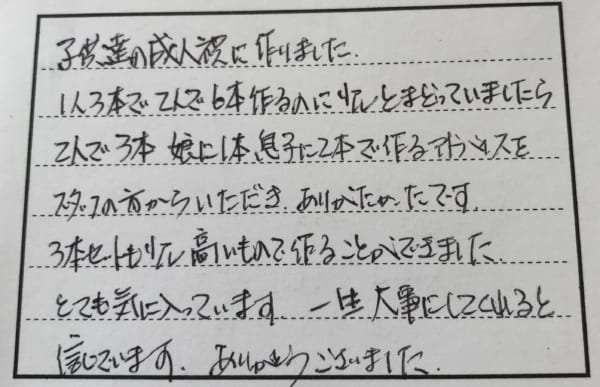 子供達の成人祝に作りました.
1人3本で2人で6本作るのに少しとまどっていましたら
2人で3本 娘に1本 息子に2本で作るアドバイスを
スタッフの方からいただき、ありがたかったです.
3本セットも少し高いもので作ることができました.
とても気に入っています. 一生大事にしてくれると
信じています. ありがとうございました.